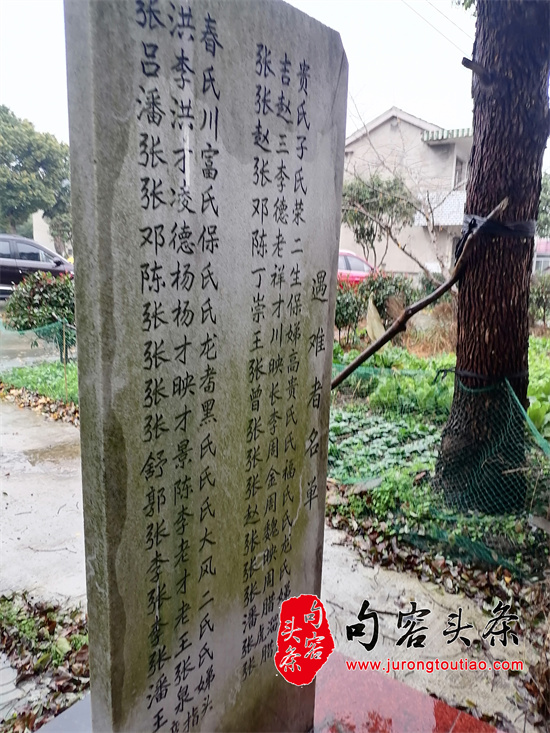 遇难者名单
张吉贵
张赵氏
赵三子
张李氏
邓德荣
陈老二
丁祥生
崇才保
王川娣
张映高
曾长贵
张李氏
张周氏
张金福
赵周氏
张魏氏
张映龙
张周氏
潘腊娣
张洪春
吕李氏
潘洪川
张才富
张凌氏
邓德保
陈杨氏
张杨氏
张才龙
张映者
张才黑
张景氏
舒陈氏
郭李氏
张老大
李才风
张老二
李王氏
张张氏
潘泉娣
王指头
句容头条
句容头条
www.jurongtoutiao.com